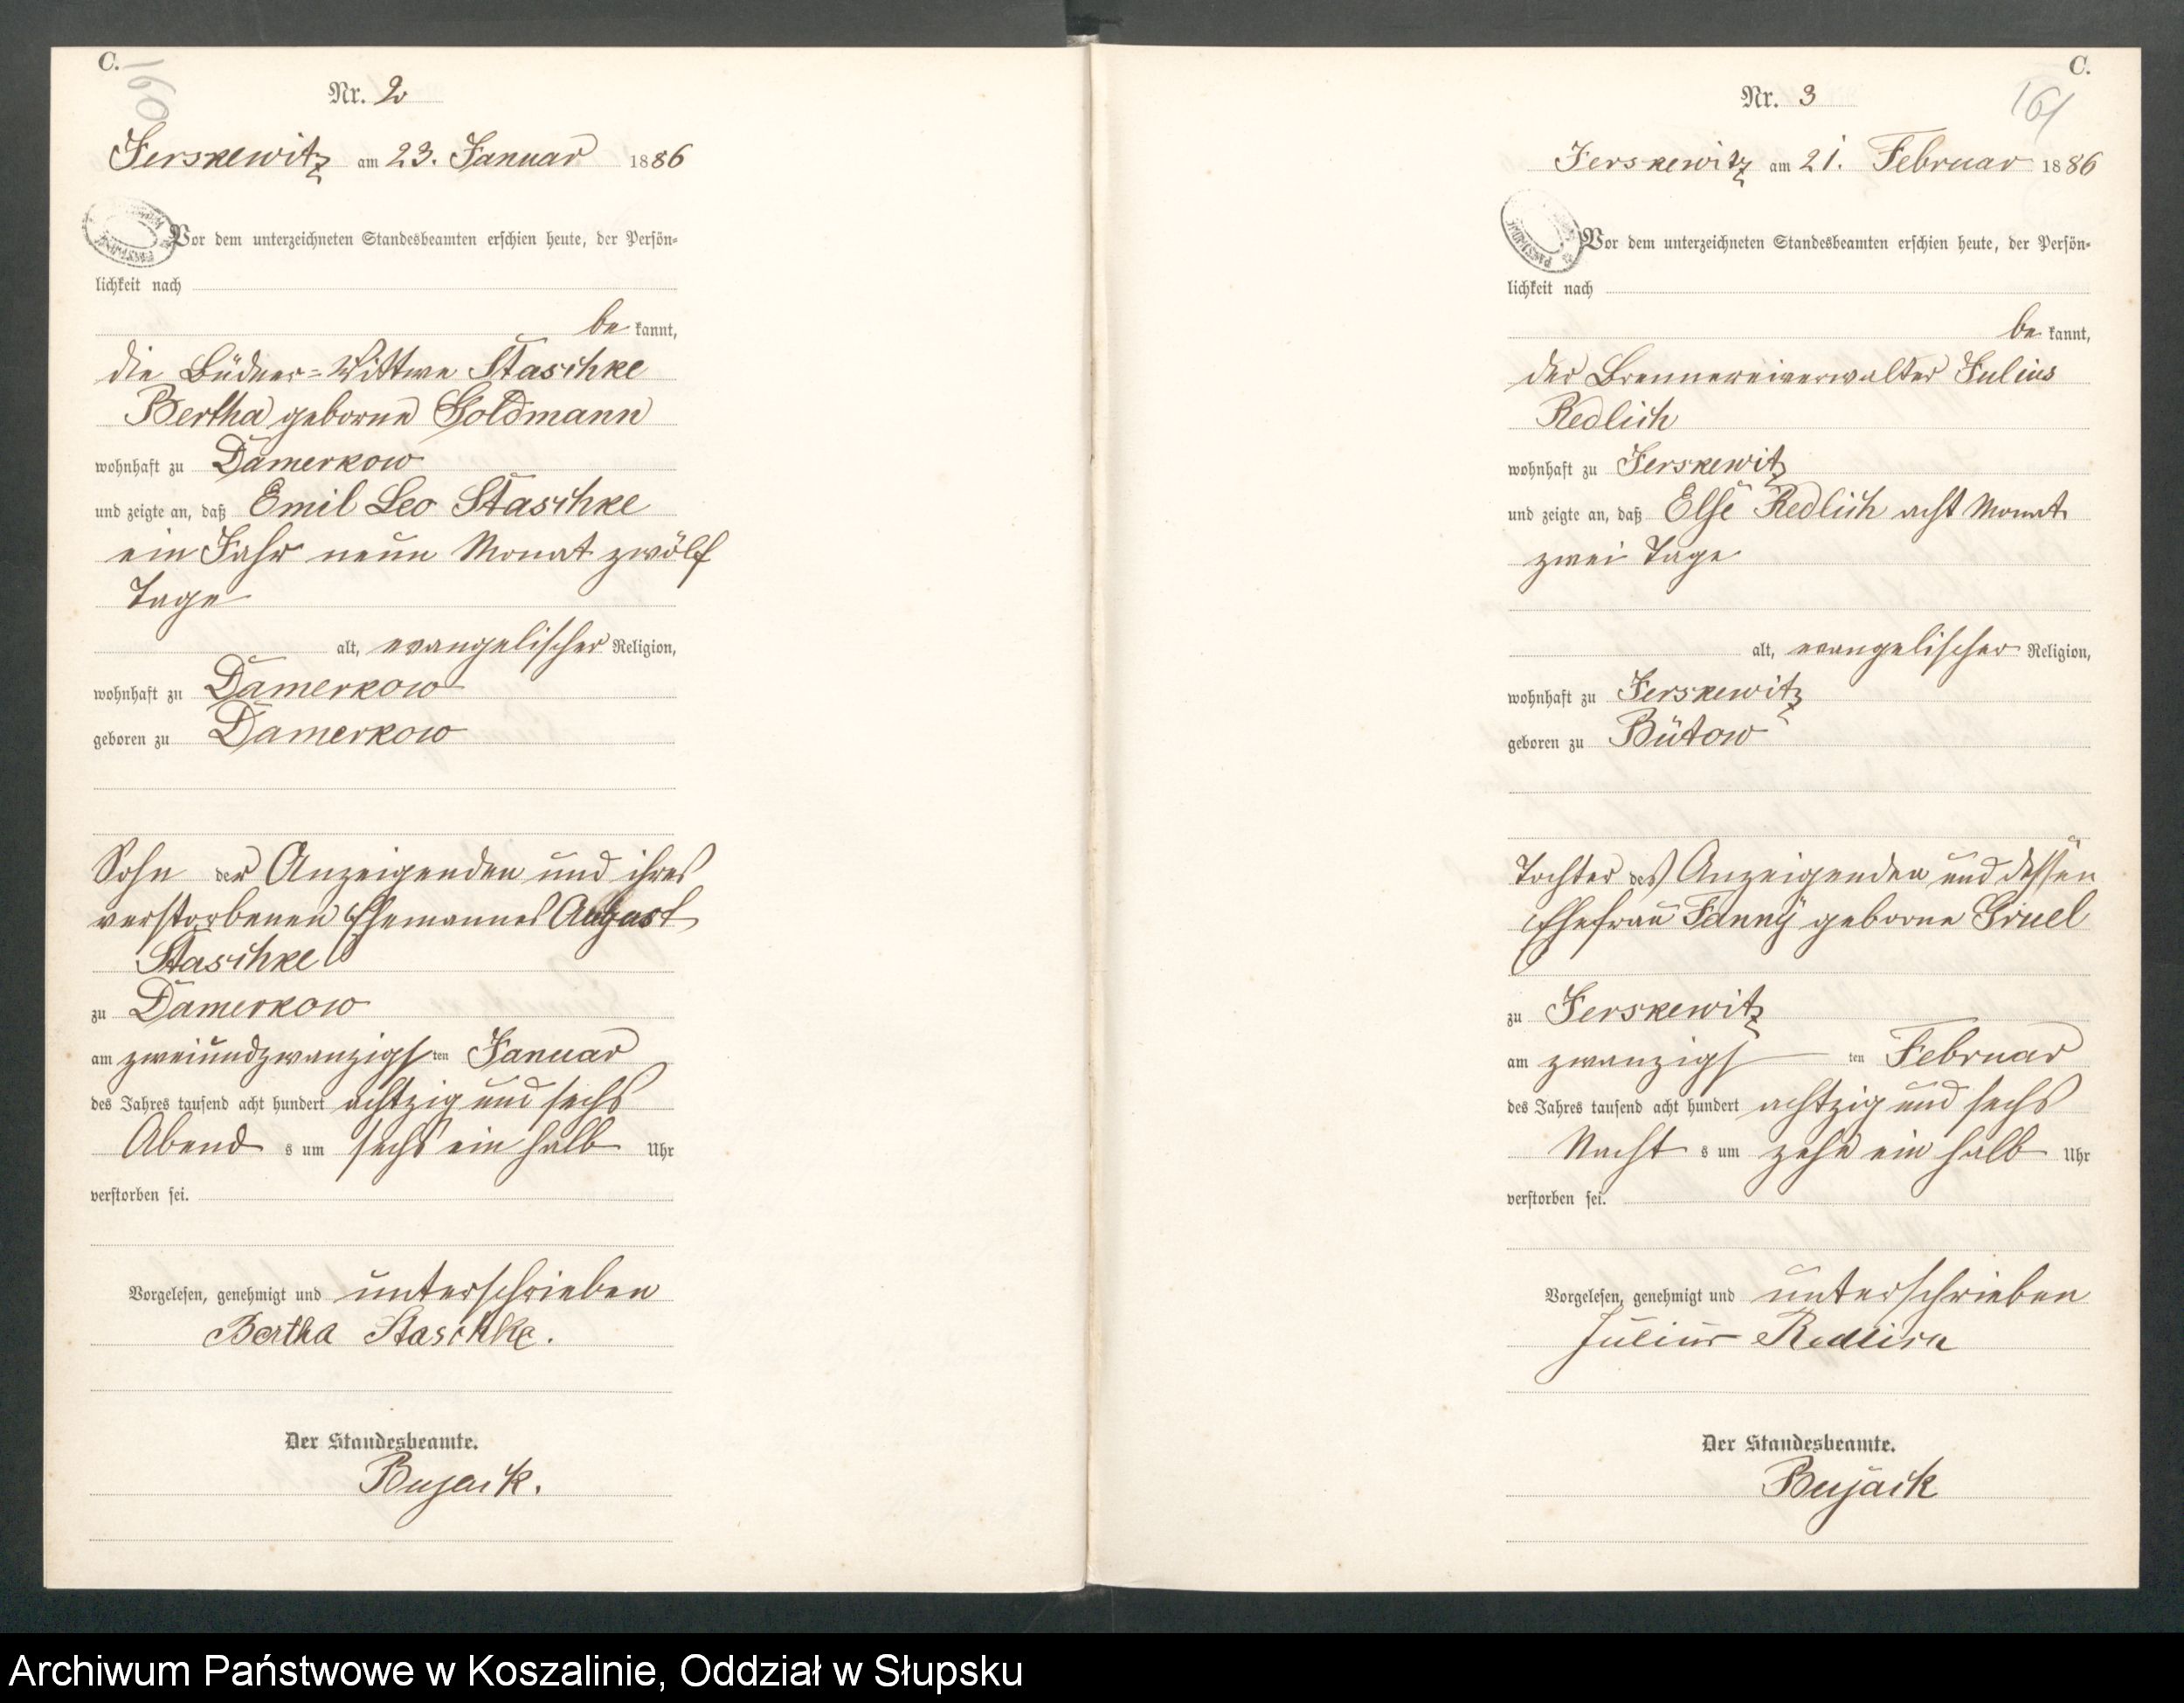 C.
160
Nr. 2
Jerskewitz am 23. Januar 1886
Vor dem unterzeichneten Standesbeamten erschien heute, der Persön-
lichkeit nach
be kannt,
die Büdner-Wittwe Staschke
Bertha geborne Goldmann
wohnhaft zu Damerkow
und zeigte an, daß Emil Leo Staschke
ein Jahr neun Monat zwölf
Tage
alt, evangelischer Religion,
wohnhaft zu Damerkow
geboren zu Damerkow
Sohn der Anzeigenden und ihres
verstorbenen Ehemannes August
Staschke
zu Damerkow
am zweiundzwanzigs ten Januar
des Jahres tausend acht hundert achtzig und sechs
Abend s um sechs ein halb Uhr
verstorben sei.
Vorgelesen, genehmigt und unterschrieben
Bertha Staschke.
Der Standesbeamte.
Bujack.
C.
161
Nr. 3
Jerskewitz am 21. Februar 1886
Vor dem unterzeichneten Standesbeamten erschien heute, der Persön-
lichkeit nach
be kannt,
der Brennereiverwalter Julius
Redlich
wohnhaft zu Jerskewitz
und zeigte an, daß Else Redlich acht Monat
zwei Tage
alt, evangelischer Religion,
wohnhaft zu Jerskewitz
geboren zu Bütow
Tochter des Anzeigenden und dessen
Ehefrau Fanny geborne Gruel
zu Jerskewitz
am zwanzigs ten Februar
des Jahres tausend acht hundert achtzig und sechs
Nacht s um zehn ein halb Uhr
verstorben sei.
Vorgelesen, genehmigt und unterschrieben
Julius Redlich
Der Standesbeamte.
Bujack
Archiwum Państwowe w Koszalinie, Oddział w Słupsku